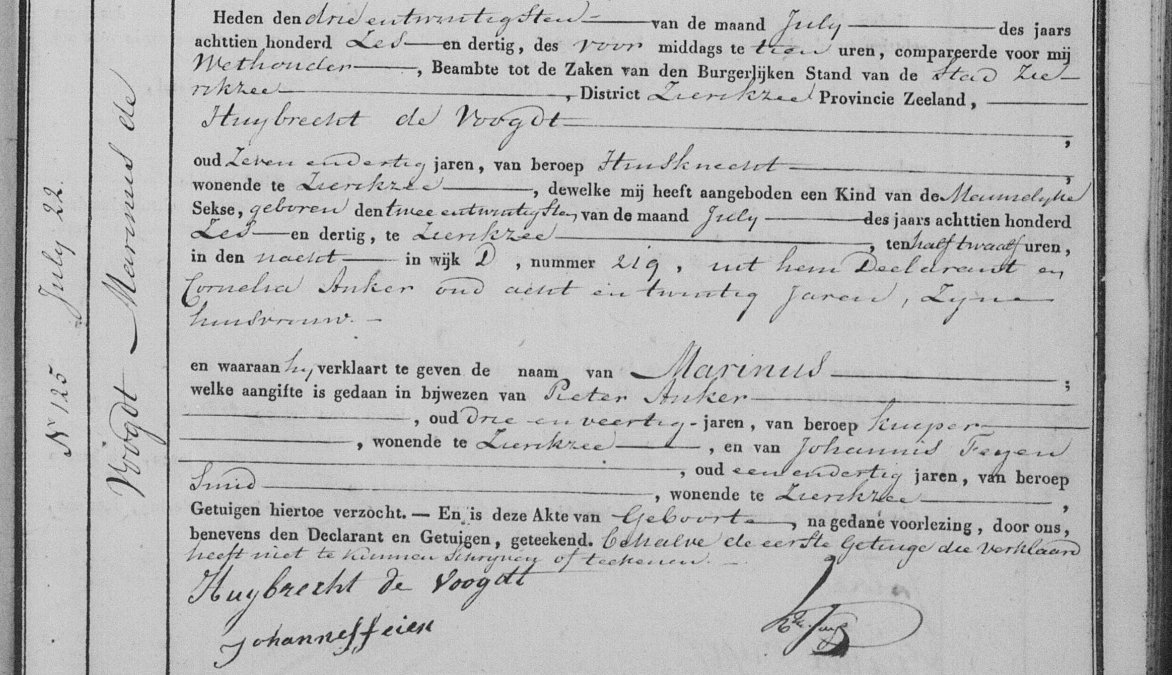 Nº 125 July 22.
Voogdt Marinus de
Heden den drie entwintigsten van de maand July des jaars
achttien honderd Zes en dertig, des voor middags te tien uren, compareerde voor mij
Wethouder, Beambte tot de Zaken van den Burgerlijken Stand van de Stad Zie-
rikzee, District Zierikzee Provincie Zeeland,
Huybrecht de Voogdt,
oud Zeven endertig jaren, van beroep Huisknecht,
wonende te Zierikzee, dewelke mij heeft aangeboden een Kind van de Mannelyke
Sekse, geboren den twee entwintigsten van de maand July des jaars achttien honderd
Zes en dertig, te Zierikzee, ten half twaalf uren,
in den nacht in wijk D, nummer 219, uit hem Declarant en
Cornelia Anker oud acht en twintig Jaren, Zyne
huisvrouw. -
en waaraan hy verklaart te geven de naam van Marinus,
welke aangifte is gedaan in bijwezen van Pieter Anker
, oud drie en veertig jaren, van beroep kuiper
, wonende te Zierikzee, en van Johannis Feyen
, oud een endertig jaren, van beroep
Smid, wonende te Zierikzee,
Getuigen hiertoe verzocht. — En is deze Akte van Geboorte, na gedane voorlezing, door ons,
benevens den Declarant en Getuigen, geteekend. Behalve de eerste Getuige die verklaard
heeft niet te kunnen Schryven of teekenen. -
Huybrecht de Voogdt
Johannes Feien